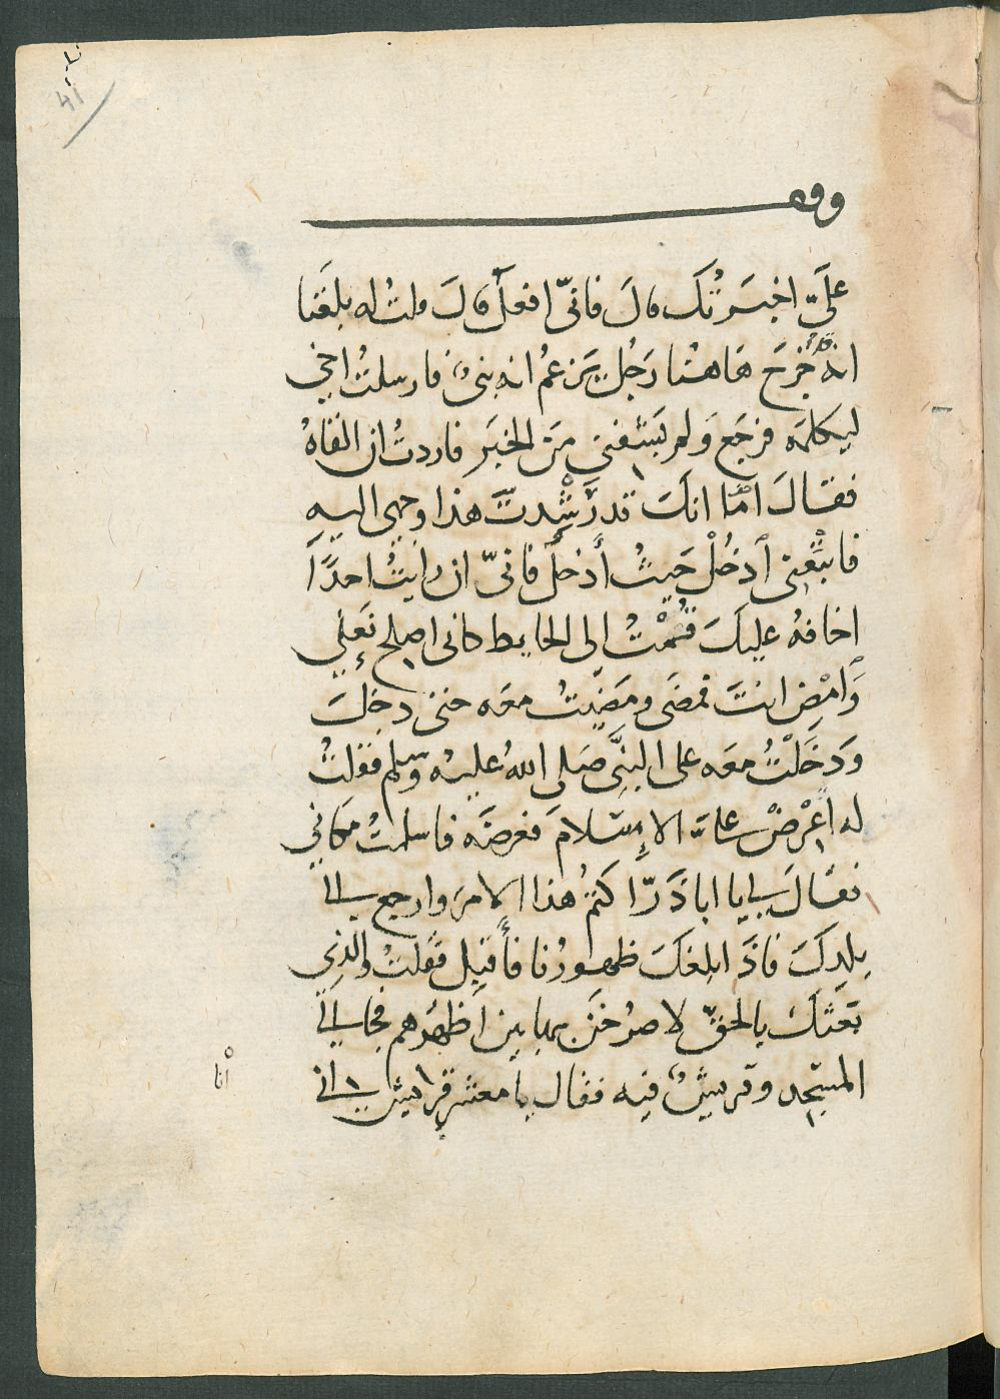 وقف
عليّ اخبَرتُكَ قالَ فانيّ افعلُ قالَ قلتُ له بلغَنا
انه قد خرجَ هَاهنُنا رَجُل يَزعمُ انه نبيٌ فارسلتُ اخي
ليكلمَه فرجَع وَلم يَشفني مِنَ الخبَر فاردتُ ان القاهُ
فقالَ امَّا انكَ قد رَشَدتَّ هذا وجهي اليهِ
فاتبَّعْني اُدخُلْ حَيثُ أدخلُ فانيّ ان رايتُ احدًا
اخافهُ عليكَ قمْتُ الى الحايط كاني اصلح نَعلي
وَامْضِ انتَ فمضَى ومَضَيتُ معَه حتى دخلَ
وَدَخَلْتُ معَه على النبيَّ صَلى اللهُ عليهْ وسلم فقلتُ
له اعْرِضْ عليَّ الاسْلامَ فعرضَه فاسلمتُ مَكاني
فقالَ لي يا ابا ذَرّ اكتمُ هذا الامرَ وارجع الى
بلدِكَ فاذَا بلغكَ ظهورُنا فأَقبِل فقلتُ والذِي
بَعثكَ بالحقّ لاصرُخَنَّ بها بين اَظهُرهم فجا الى
المسجدِ وقريشٌ فيه فقال يا معشرَ قرَيش اني
أنا
41